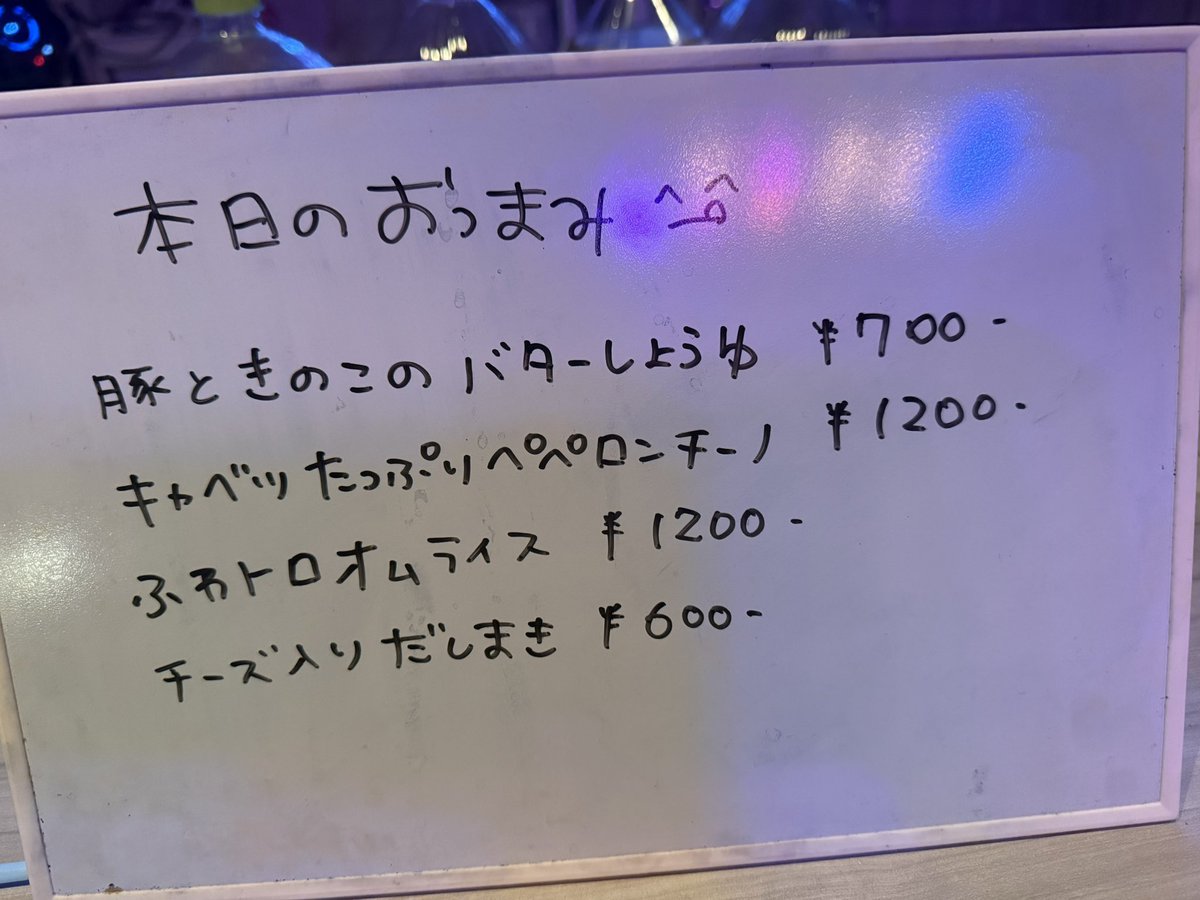 本日のおつまみ ^_o^
豚ときのこのバターしょうゆ ¥700-
キャベツたっぷりペペロンチーノ ¥1200-
ふわトロオムライス ¥1200-
チーズ入りだしまき ¥600-